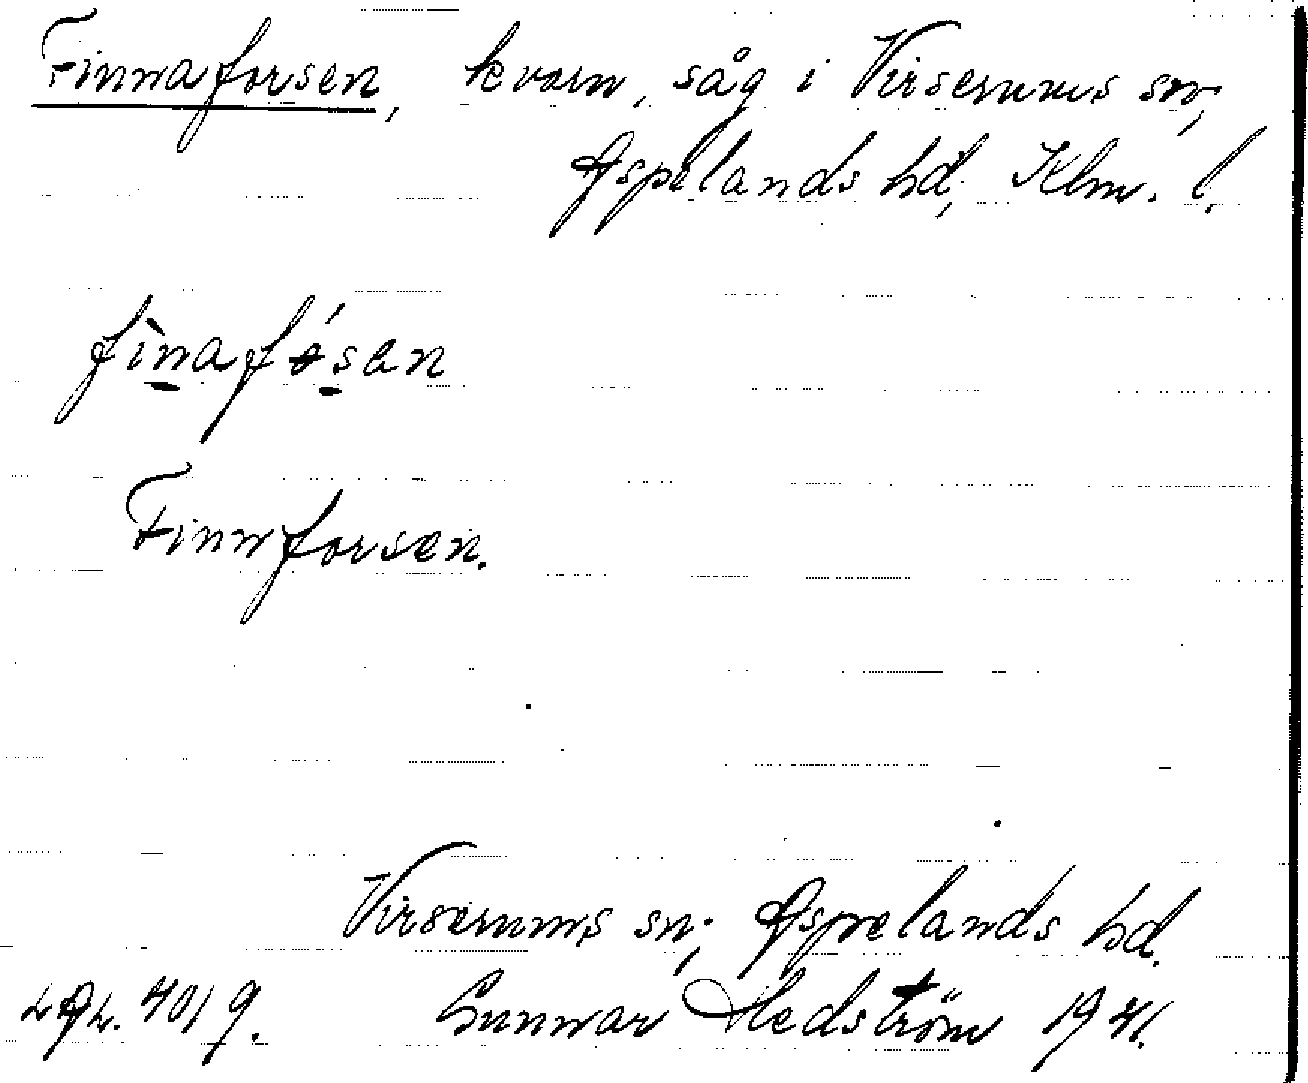 Finnaforsen, kvarn, såg i Virserums sn;
Aspelands hd, Klm. l.
fìnafósen
Finnforsen.
Virserums sn; Aspelands hd.
Gunnar Hedström 1941.